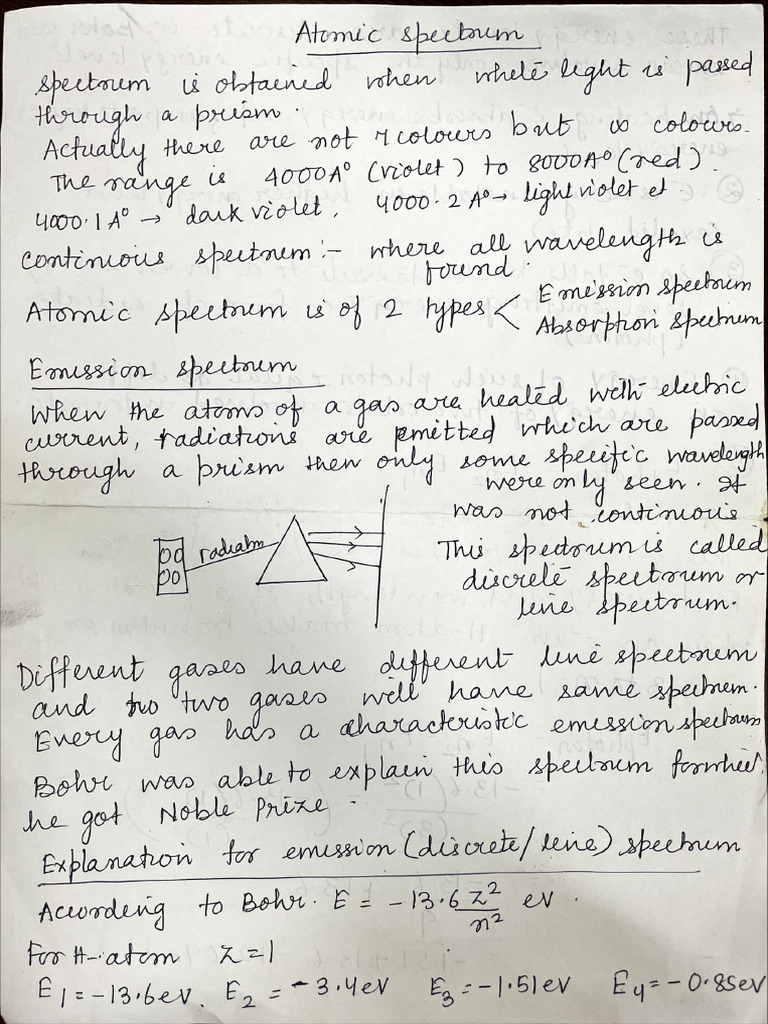 Atomic spectrum
spectrum is obtained when white light is passed
through a prism.
Actually there are not 7 colours but ∞ colours.
The range is 4000A° (violet) to 8000A° (red).
4000.1A° → dark violet. 4000.2A° → light violet et.
continuous spectrum :- where all wavelength is
found.
Atomic spectrum is of 2 types < Emission spectrum
Absorption spectrum
Emission spectrum
When the atoms of a gas are heated with electric
current, radiations are emitted which are passed
through a prism then only some specific wavelength
were only seen. It
was not continuous
This spectrum is called
discrete spectrum or
line spectrum.
radiatn
Different gases have different line spectrum
and no two gases will have same spectrum.
Every gas has a characteristic emission spectrum
Bohr was able to explain this spectrum for which
he got Noble Prize.
Explanation for emission (discrete/line) spectrum
According to Bohr. E = -13.6 z²/n² ev.
For H-atom z=1
E1 = -13.6ev. E2 = -3.4ev E3 = -1.51ev E4 = -0.85ev